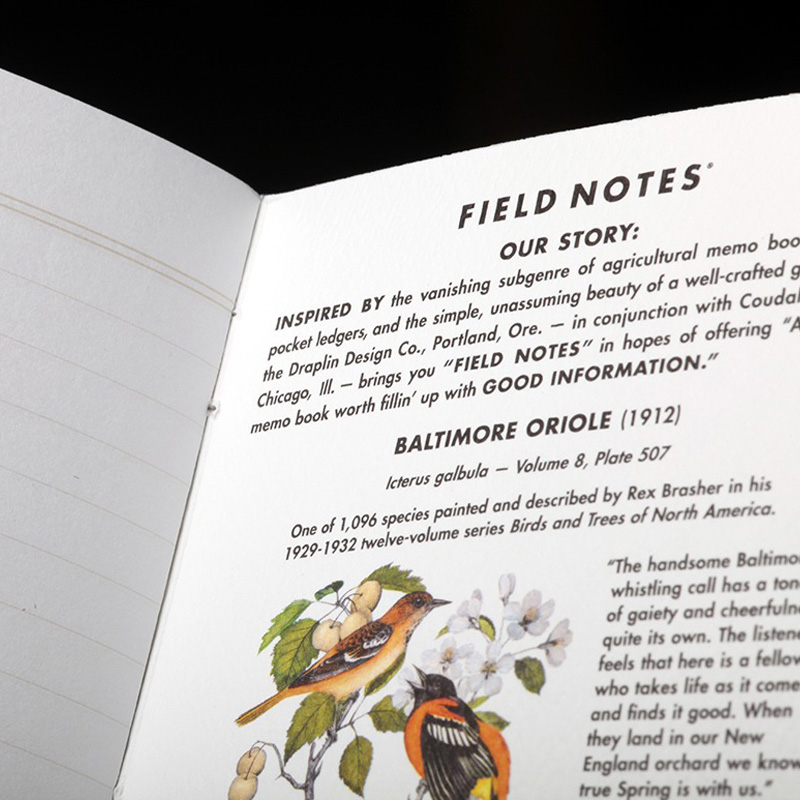 FIELD NOTES®
OUR STORY:
INSPIRED BY the vanishing subgenre of agricultural memo
pocket ledgers, and the simple, unassuming beauty of a well-crafted
the Draplin Design Co., Portland, Ore. — in conjunction with
Chicago, Ill. — brings you “FIELD NOTES” in hopes of offering
memo book worth fillin’ up with GOOD INFORMATION.”
BALTIMORE ORIOLE (1912)
Icterus galbula — Volume 8, Plate 507
One of 1,096 species painted and described by Rex Brasher in his
1929-1932 twelve-volume series Birds and Trees of North America.
“The handsome
whistling call has a
of gaiety and
quite its own. The
feels that here is a
who takes life as it
and finds it good. When
they land in our New
England orchard we
true Spring is with us.”